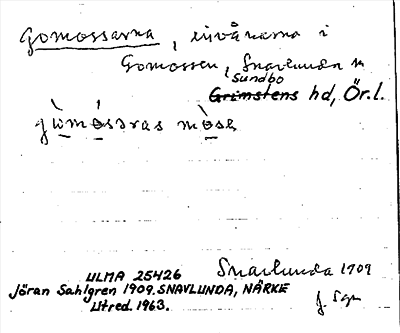 Gomossarna, invånarna i
Gomossen, Snavlunda sn
Sundbo
Grimstens hd, Ör.l.
gò̱mó̱sɔras mò̱se
ULMA 25426 Snavlunda 1909
Jöran Sahlgren 1909. SNAVLUNDA, NÄRKE
Utred. 1963. J. Sgn